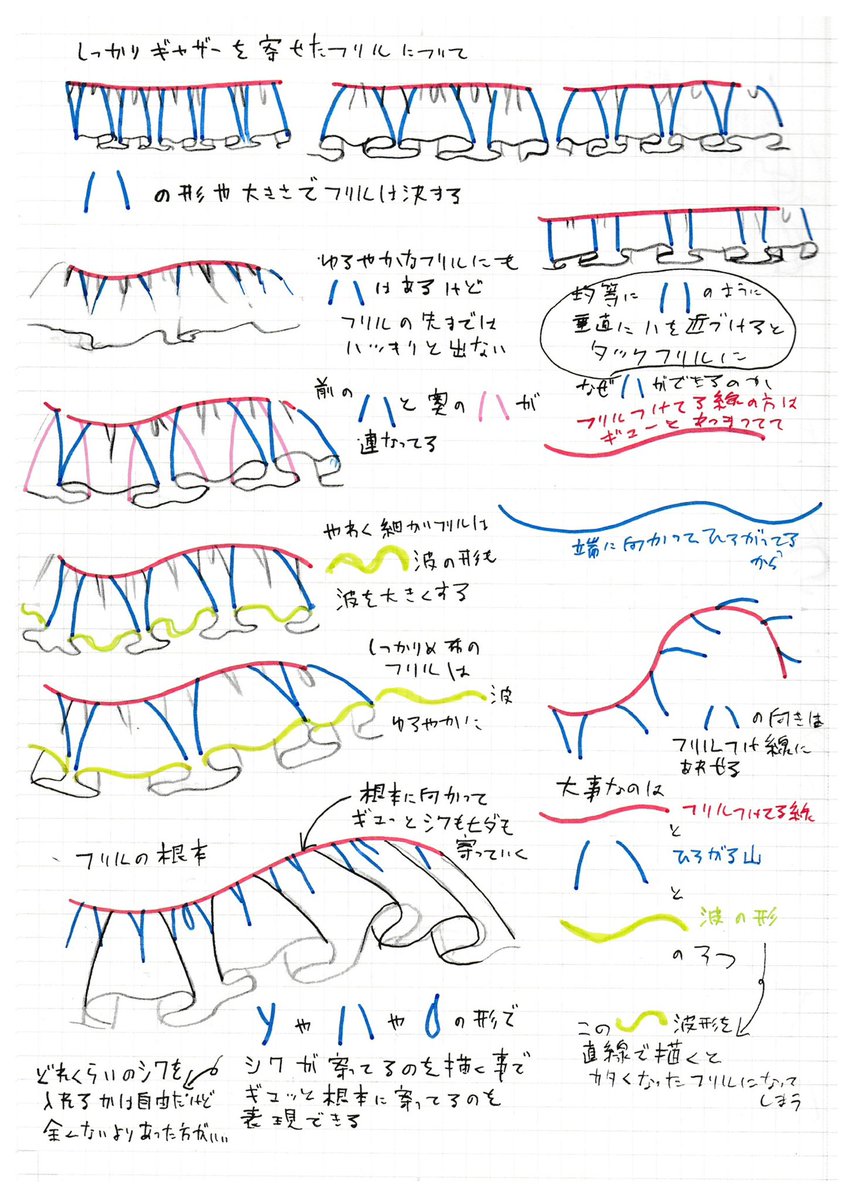 しっかりギャザーを寄せたフリルについて
ハの形や大きさでフリルは決まる
ゆるやかなフリルにも
ハはあるけど
フリルの先までは
ハッキリと出ない
均等にハのように
垂直にハを近づけると
タックフリルに
なぜハができるのか
フリルつけてる線の方は
ギューとあつまってて
端に向かってひろがってる
から
前のハと奥のハが
連なってる
やわく細かいフリルは
波の形も
波を大きくする
しっかりめ布の
フリルは
波
ゆるやかに
ハの向きは
フリルつけ線に
あわせる
大事なのは
フリルつけてる線
と
ひろがる山
と
波の形
の3つ
この波形を
直線で描くと
カタくなったフリルになって
しまう
フリルの根本
根本に向かって
ギュっとシワもヒダも
寄っていく
yやハや0の形で
シワが寄ってるのを描く事で
ギュッと根本に寄ってるのを
表現できる
どれくらいのシワを
入れるかは自由だけど
全くないよりあった方がいい